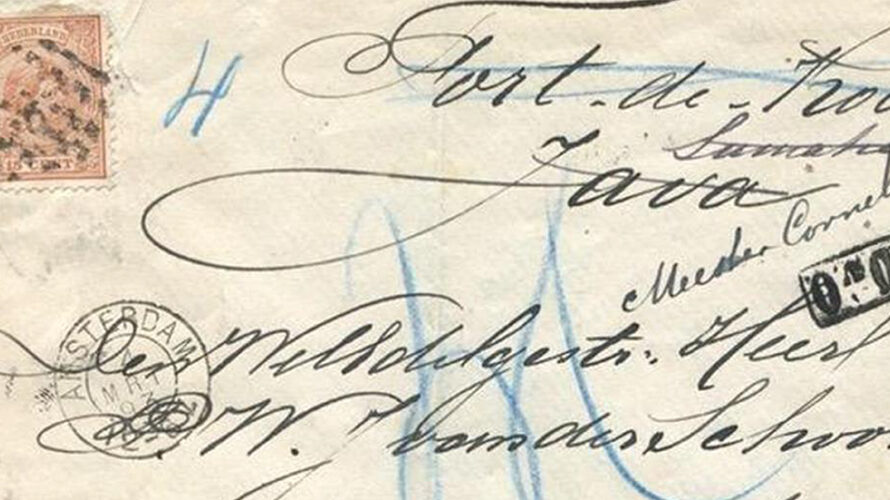 NEDERLAND
15 CENT
4
Fort-de-Ko
Sumatra
Java
Meester Corne
AMSTERDAM
MRT
Den WelEdelgestr. Heer
W. J. van der Schoo